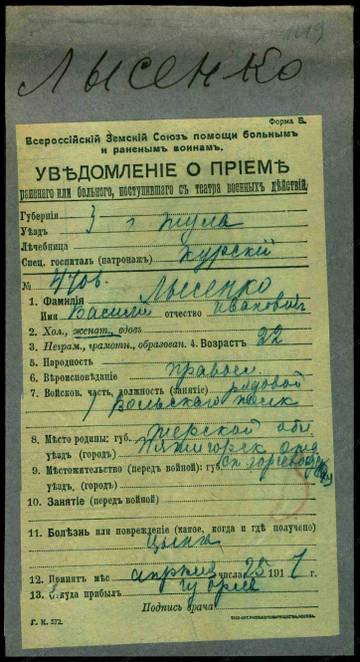 Лысенко
Форма Б.
Всероссійскій Земскій Союзъ помощи больнымъ
и раненымъ воинамъ.
УВѢДОМЛЕНІЕ О ПРІЕМѢ
раненаго или больного, поступившаго съ театра военныхъ дѣйствій.
Губернія
Уѣздъ г Тула
Лѣчебница
Спец. госпиталь (патронажъ) Курскій
№
1. Фамилія Лысенко
Имя Василій отчество Ивановичъ
2. Хол., женат., вдовъ
3. Неграм., грамотн., образован. 4. Возрастъ 22
5. Народность
6. Вѣроисповѣданіе правосл.
7. Войсков. часть, должность (занятіе) рядовой
Вольскаго полк
8. Мѣсто родины: губ. Терской обл
уѣздъ (городъ) Пятигорск
9. Мѣстожительство (передъ войной): губ.
уѣздъ, (городъ)
10. Занятіе (передъ войной)
11. Болѣзнь или поврежденіе (какое, когда и гдѣ получено)
Цынга
12. Принятъ мѣс апрѣля числа 25 1917 г.
13. Откуда прибылъ
Подпись врача
Г. К. 572.